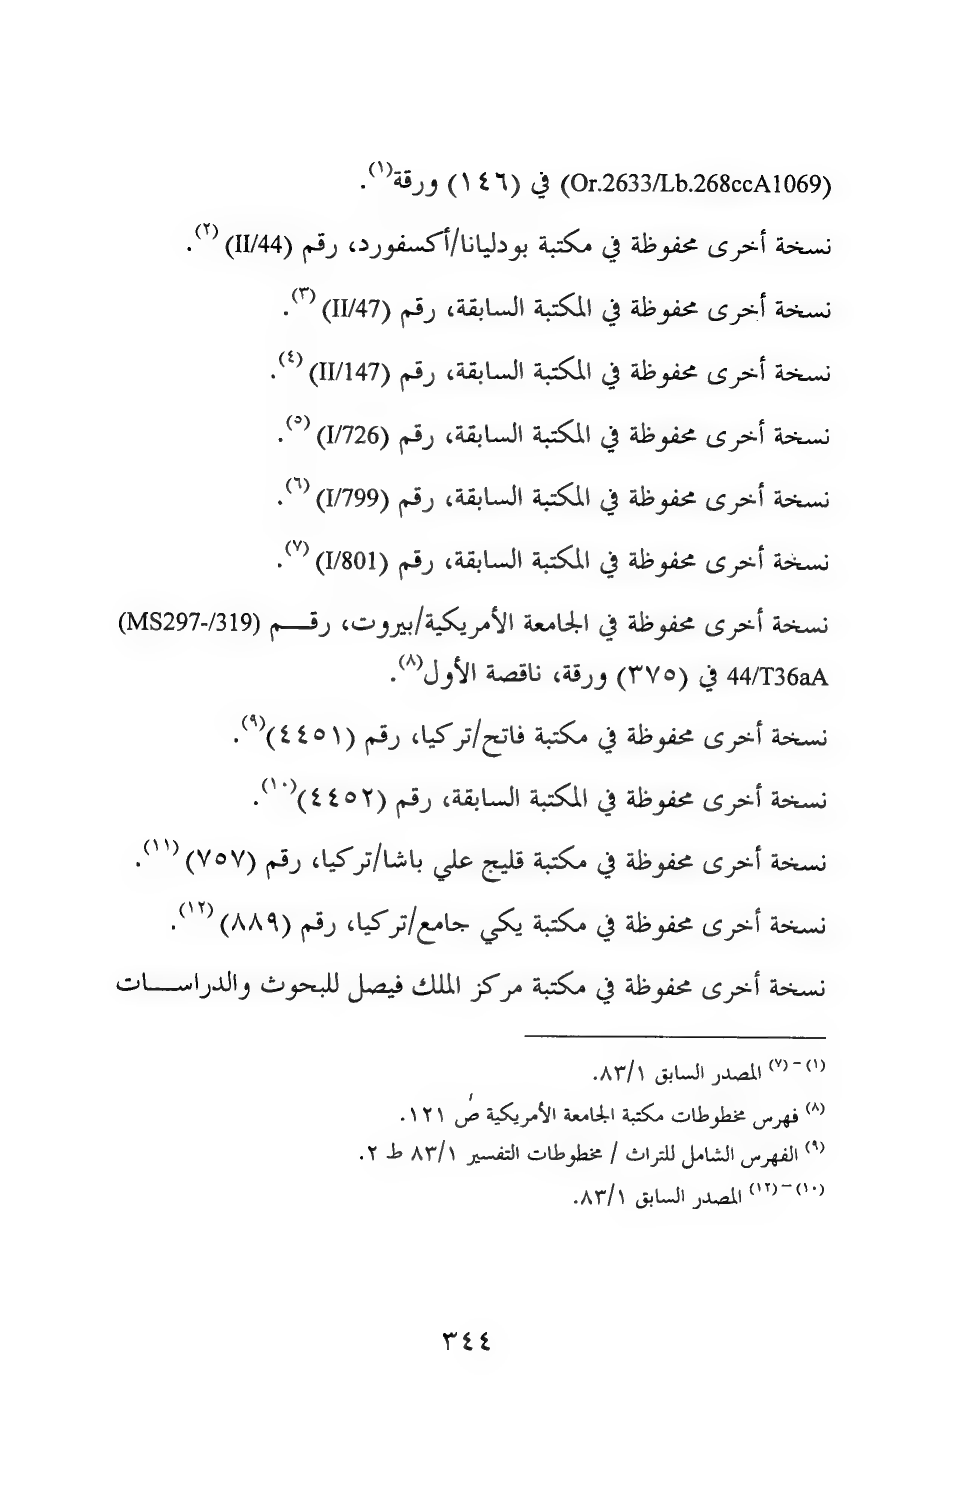 (Or.2633/Lb.268ccA1069) في (١٤٦) ورقة(١).
نسخة أخرى محفوظة في مكتبة بودليانا/أكسفورد، رقم (II/44) (٢).
نسخة أخرى محفوظة في المكتبة السابقة، رقم (II/47) (٣).
نسخة أخرى محفوظة في المكتبة السابقة، رقم (II/147) (٤).
نسخة أخرى محفوظة في المكتبة السابقة، رقم (I/726) (٥).
نسخة أخرى محفوظة في المكتبة السابقة، رقم (I/799) (٦).
نسخة أخرى محفوظة في المكتبة السابقة، رقم (I/801) (٧).
نسخة أخرى محفوظة في الجامعة الأمريكية/بيروت، رقـــم (MS297-/319)
44/T36aA في (٣٧٥) ورقة، ناقصة الأول(٨).
نسخة أخرى محفوظة في مكتبة فاتح/تركيا، رقم (٤٤٥١)(٩).
نسخة أخرى محفوظة في المكتبة السابقة، رقم (٤٤٥٢)(١٠).
نسخة أخرى محفوظة في مكتبة قليج علي باشا/تركيا، رقم (٧٥٧) (١١).
نسخة أخرى محفوظة في مكتبة يكي جامع/تركيا، رقم (٨٨٩) (١٢).
نسخة أخرى محفوظة في مكتبة مركز الملك فيصل للبحوث والدراســـات
(١) – (٧) المصدر السابق ٨٣/١.
(٨) فهرس مخطوطات مكتبة الجامعة الأمريكية ص ١٢١.
(٩) الفهرس الشامل للتراث / مخطوطات التفسير ٨٣/١ ط ٢.
(١٠) – (١٢) المصدر السابق ٨٣/١.
٣٤٤